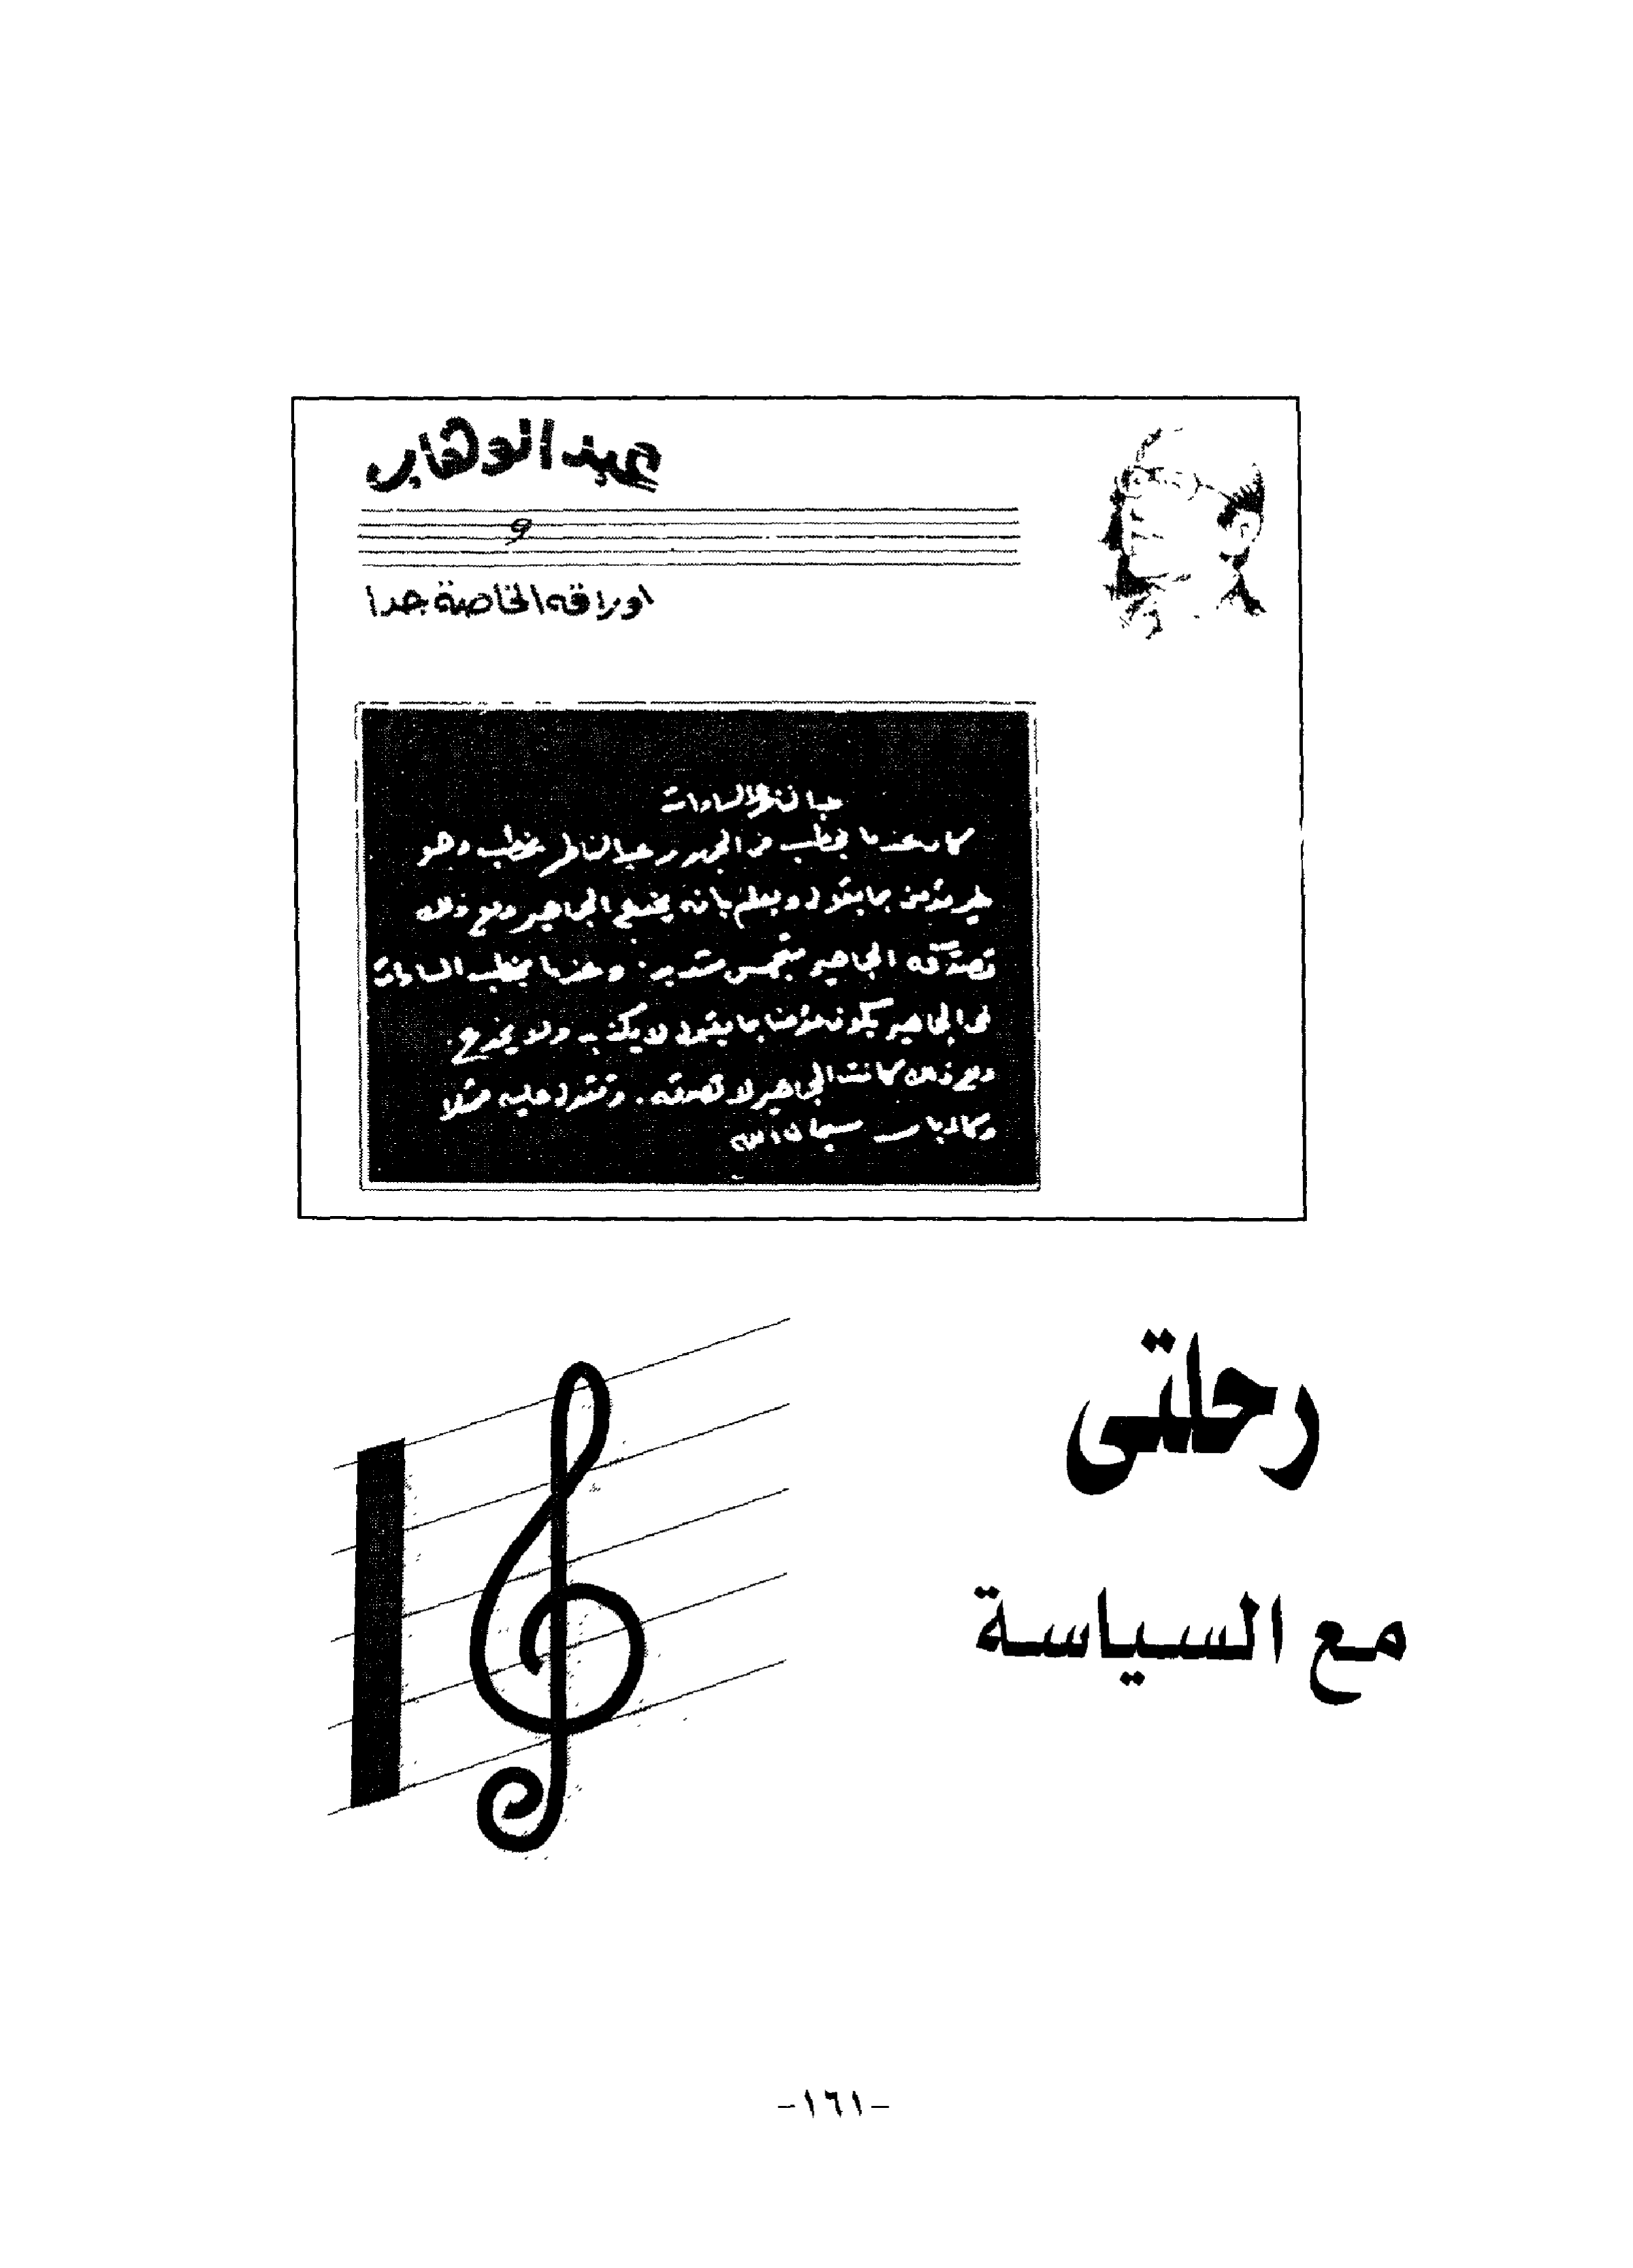 عبد الوهاب
و
اوراقه الخاصة جدا
كان عندما يخطب عبد الناصر يخطب وهو
غير مؤمن بما يقول ويعلم بأنه يخدع الجماهير ومع ذلك
تصدقه الجماهير بتحمس شديد. وعندما يخطب السادات
فى الجماهير يكون مؤمنا بما يقول لا يكذب ولا يخدع
ومع ذلك كانت الجماهير لا تصدقه. وتقول عليه مثلا
سبحان الله
رحلتى
مع السياسة
-١٦١-